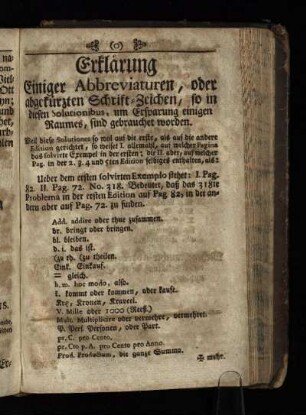 (o)
Erklärung
Einiger Abbreviaturen, oder
abgekürzten Schrift-Zeichen, so in
diesen Solucionibus, um Ersparung einigen
Raumes, sind gebrauchet worden.
Weil diese Solutiones so wol auf die erste, als auf die andere
Edition gerichtet, so weiset I. allemahl, auf welcher Pagina
das solvirte Exempel in der ersten; die II. aber, auf welcher
Pag. in der 2. 3. 4 und 5ten Edition selbiges enthalten, als:
Ueber dem ersten solvirten Exemplo stehet: I. Pag.
82. II. Pag. 72. No. 318. Bedeutet, daß das 318te
Problema in der ersten Edition auf Pag. 82, in der an-
dern aber auf Pag. 72. zu finden.
Add. addire oder thue zusammen.
br. bringt oder bringen.
bl. bleiben.
d. i. das ist.
(zu th. (zu theilen.
Eink. Einkauf.
= gleich.
h. m. hoc modo, also.
k. kommt oder kommen, oder kauft.
Kr, Kronen, Kraveel.
V. Mille oder 1000 (Reeß.)
Mult. Multiplicire oder vermehre, vermehret.
P. Pers. Personen, oder Part.
pr. C. pro Cento.
pr. Cto p. A. pro Cento pro Anno.
Prod. Productum, die ganze Summa.